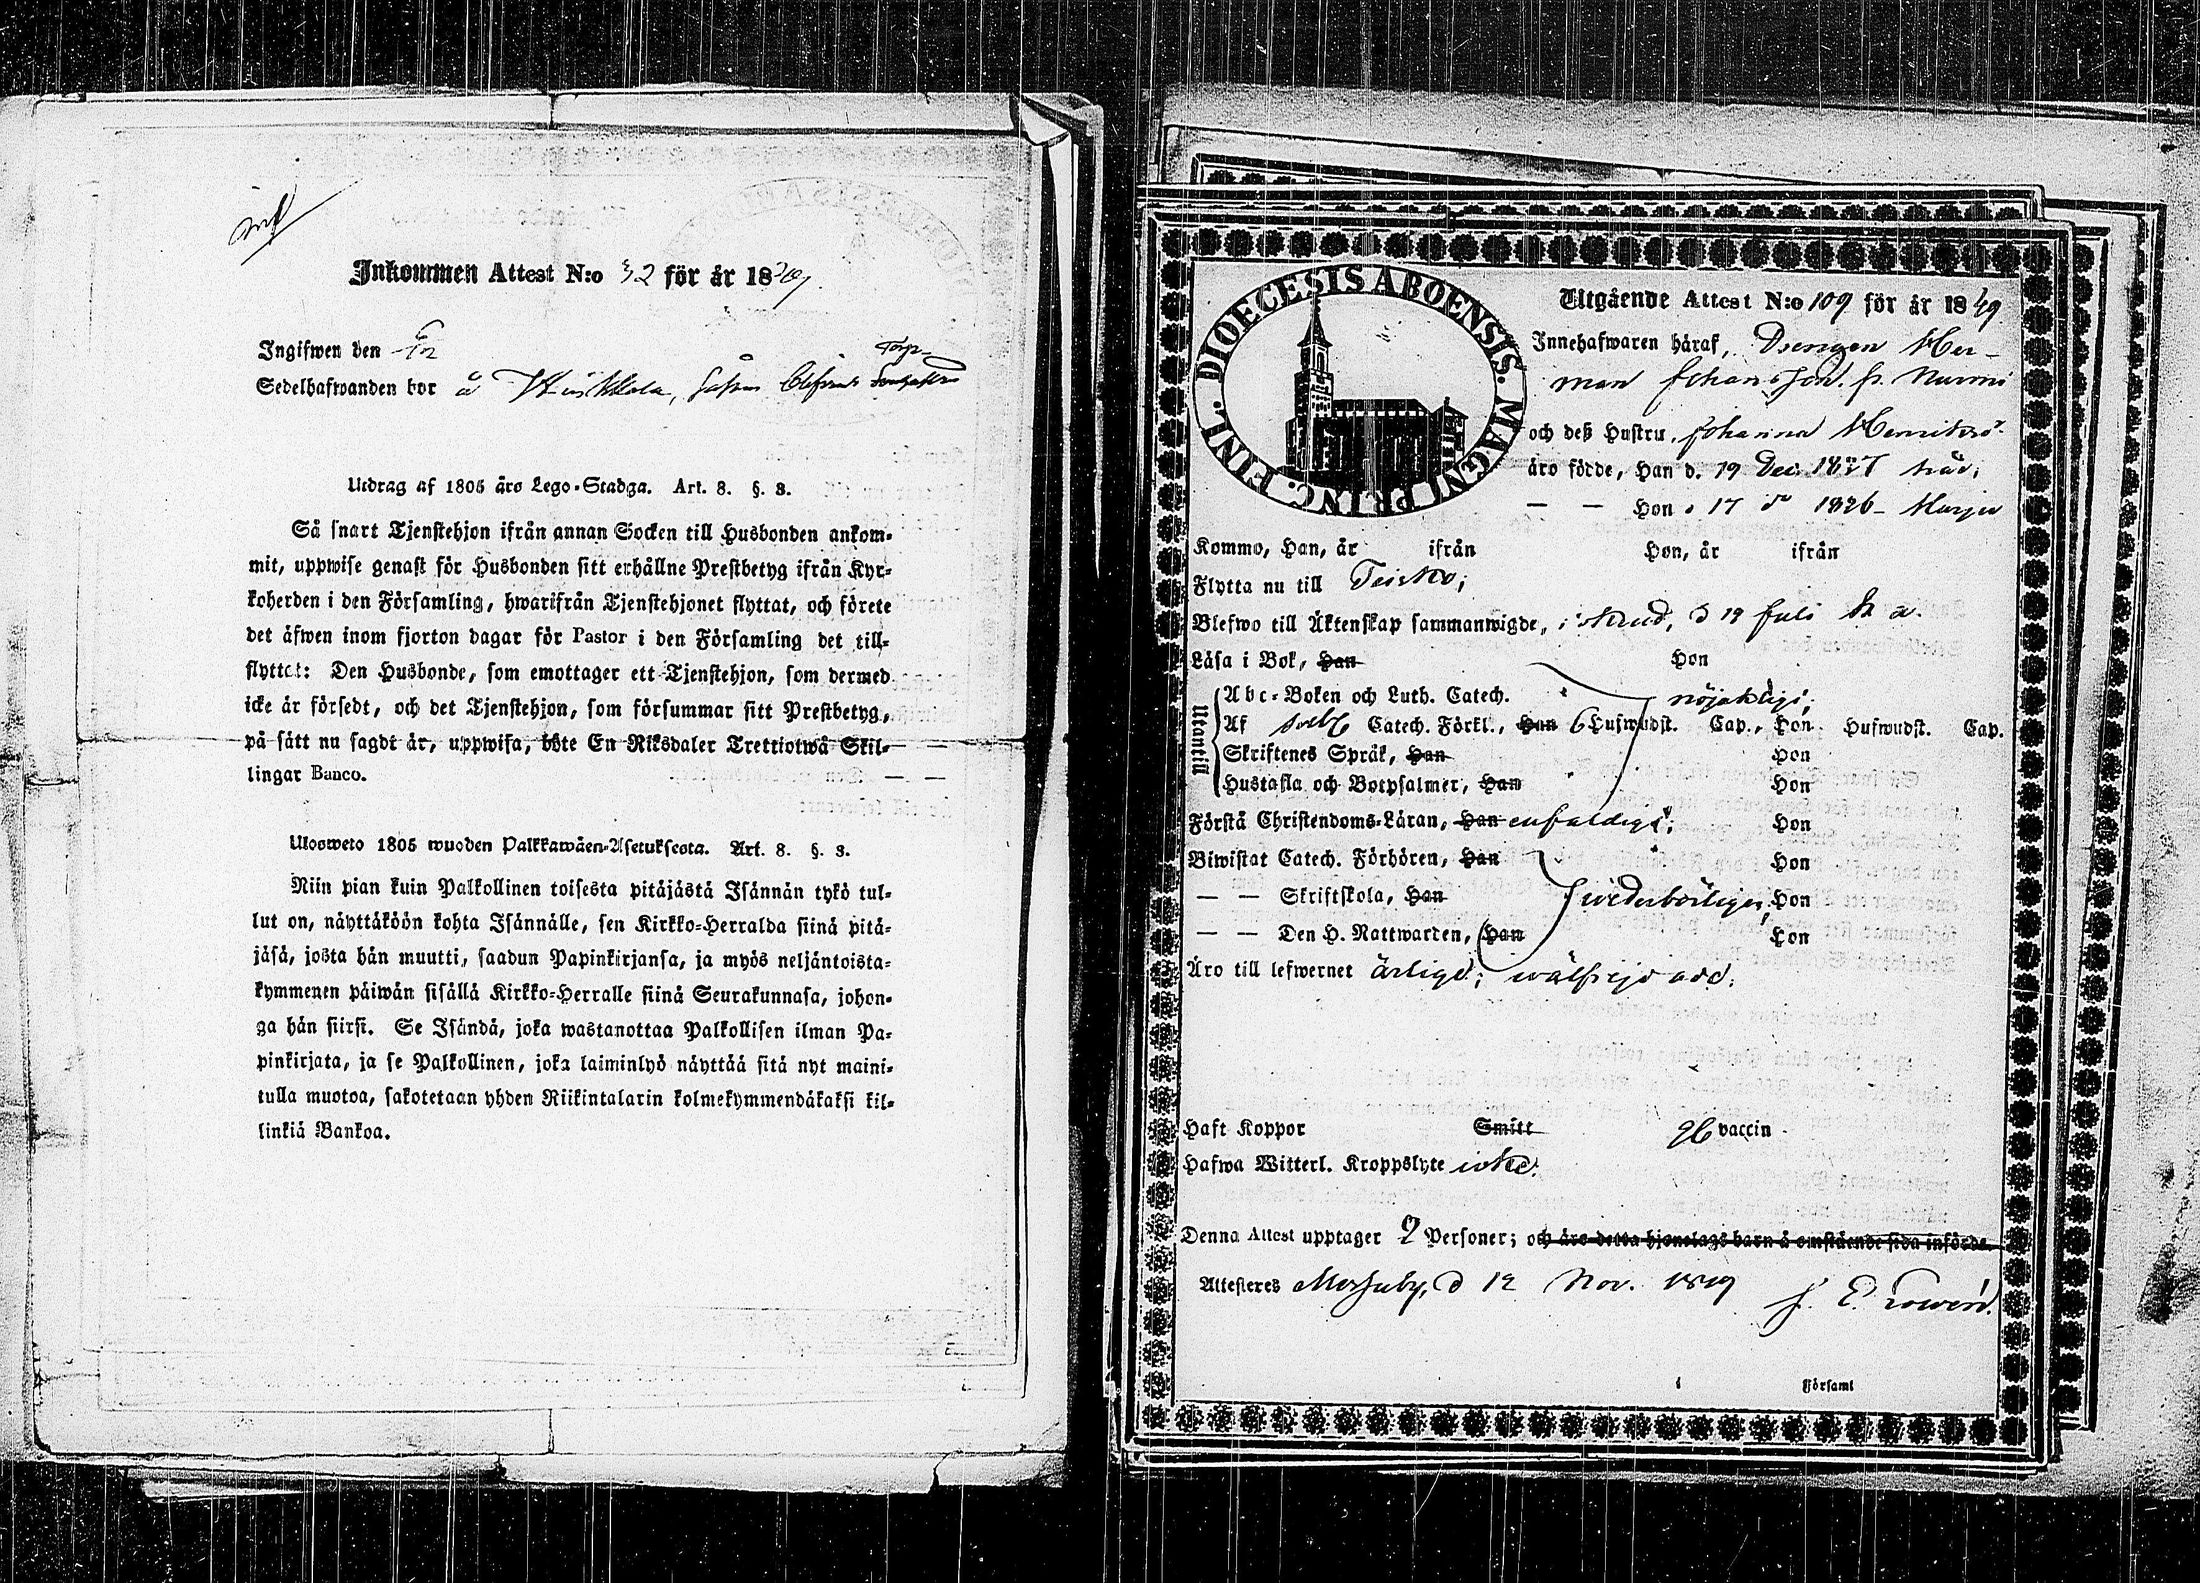 Inkommen Attest N:o 32 för år 1849.
Ingifwen den
Sedelhafwanden bor å
Utdrag af 1805 års Lego-Stadga. Art. 8. §. 3.
Så snart Tjenstehjon ifrån annan Socken till Husbonden ankom-
mit, uppwise genast för Husbonden sitt erhållne Prestbetyg ifrån Kyr-
koherden i den Församling, hwarifrån Tjenstehjonet flyttat, och förete
det äfwen inom fjorton dagar för Pastor i den Församling det till-
flyttat: Den Husbonde, som emottager ett Tjenstehjon, som dermed
icke är försedt, och det Tjenstehjon, som försummar sitt Prestbetyg,
på sätt nu sagdt är, uppwisa, böte En Riksdaler Trettiotwå Skil-
lingar Banco.
Ulosweto 1805 wuoden Palkkawäen-Asetuksesta. Art. 8. §. 3.
Niin pian kuin Palkollinen toisesta pitäjästä Isännän tykö tul-
lut on, näyttäköön kohta Isännälle, sen Kirkko-Herralda siinä pitä-
jäsä, josta hän muutti, saadun Papinkirjansa, ja myös neljäntoista-
kymmenen päiwän sisällä Kirkko-Herralle siinä Seurakunnasa, johon-
ga hän siirsi. Se Isändä, joka wastanottaa Palkollisen ilman Pa-
pinkirjata, ja se Palkollinen, joka laiminlyö näyttää sitä nyt maini-
tulla muotoa, sakotetaan yhden Riikintalarin kolmekymmendäkaksi kil-
linkiä Bankoa.
DIOECESIS ABOENSIS. MAGNI PRINC. FINL.
Utgående Attest N:o 109 för år 1849
Innehafwaren häraf, Drengen Her-
man Johansson fr. Nurmi
och deß Hustru, Johanna Henriksdr
äro födde, Han d. 19 Dec. 1827
— — Hon 17 1826
Kommo, Han, år ifrån Hon, år ifrån
Flytta nu till Teisko;
Blefwo till Äktenskap sammanwigde, d 19 Juli
Läsa i Bok, Han Hon
Utantill
Abc-Boken och Luth. Catech. nöjaktigt;
Af Catech. Förkl., Han 6 Hufwudst. Cap., Hon Hufwudst. Cap.
Skriftenes Språk, Han Hon
Hustafla och Botpsalmer, Han Hon
Förstå Christendoms-Läran, Han enfaldigt; Hon
Biwistat Catech. Förhören, Han Hon
— — Skriftskola, Han wederbörligen, Hon
— — Den H. Nattwarden, Han Hon
Äro till lefwernet ärlige; wälfrejdade.
Haft Koppor Smitt vaccin
Hafwa Witterl. Kroppslyte icke.
Denna Attest upptager 2 Personer; och äro detta hjonelags barn å omstående sida införde.
Attesteres d 12 Nov. 1849
Församl